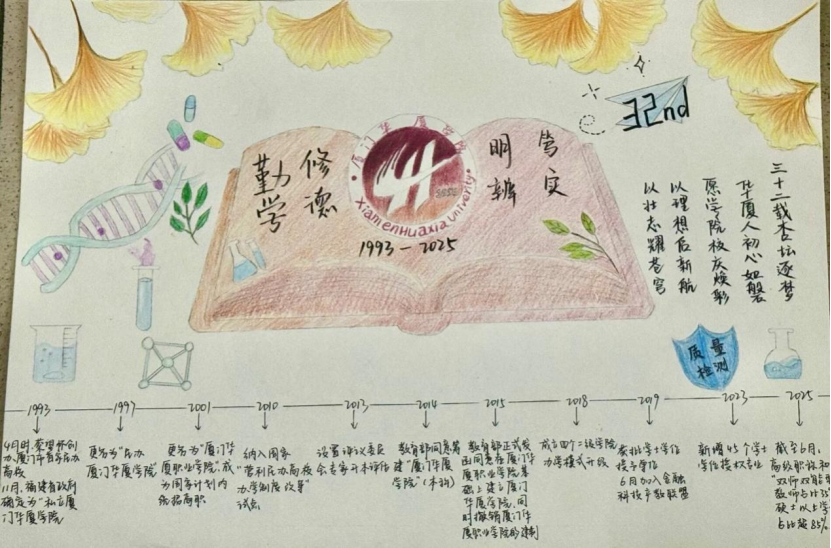 32nd
勤学
修德
明辨
笃实
厦门华厦学院
Xiamen Huaxia University
1993-2025
三十二载杏坛逐梦
华厦人初心如磐
愿学院校庆焕彩
以理想启新航
以壮志耀苍穹
质量
检测
1993
1997
2001
2010
2014
2015
2018
2019
2023
2025
更名为"民办
厦门华厦学院"
更名为"厦门华
厦职业学院",成
为国家计划内
统招高职
纳入国家
"营利民办高校
办学制度改革"
试点
设置评议委员
会专家开来评估
教育部同意筹
建"厦门华厦
学院"(本科)
教育部正式发
函同意在厦门华
厦职业学院基
础上建立厦门
华厦学院,同
时撤销厦门华
厦职业学院的建制
成立四个二级学院
办学模式升级
获批学士学位
授予单位
6月加入金融
科技产教联盟
新增45个学士
学位授权专业
截至6月,
高级职称和
"双师双能
教师占比35
硕士以上学
占比超85%
11月,福建省政府
确定为"私立厦
门华厦学院